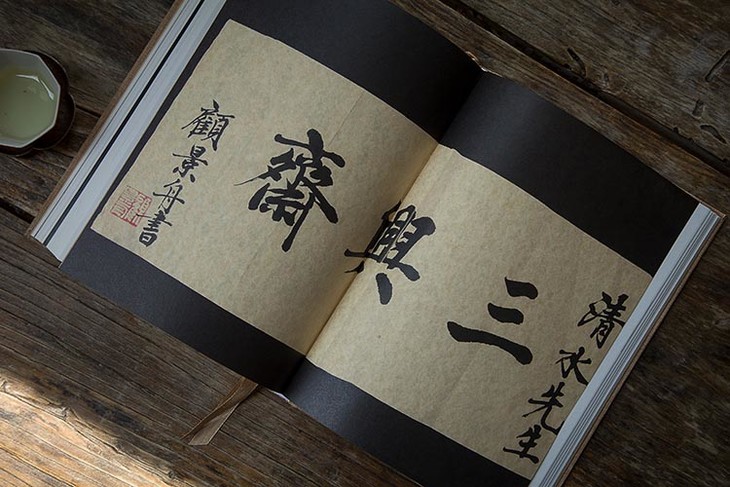 清水先生
三興齋
顧景舟書